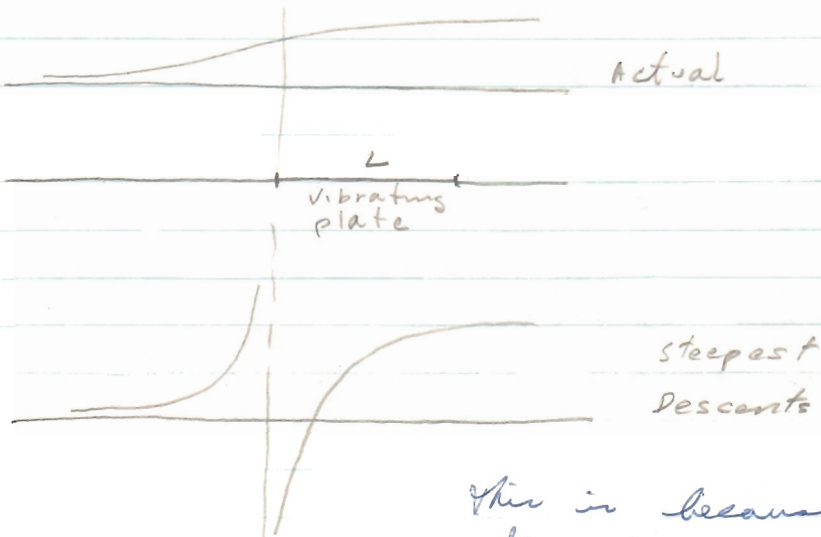 Actual
L
vibrating
plate
Steepest
Descents
This is because